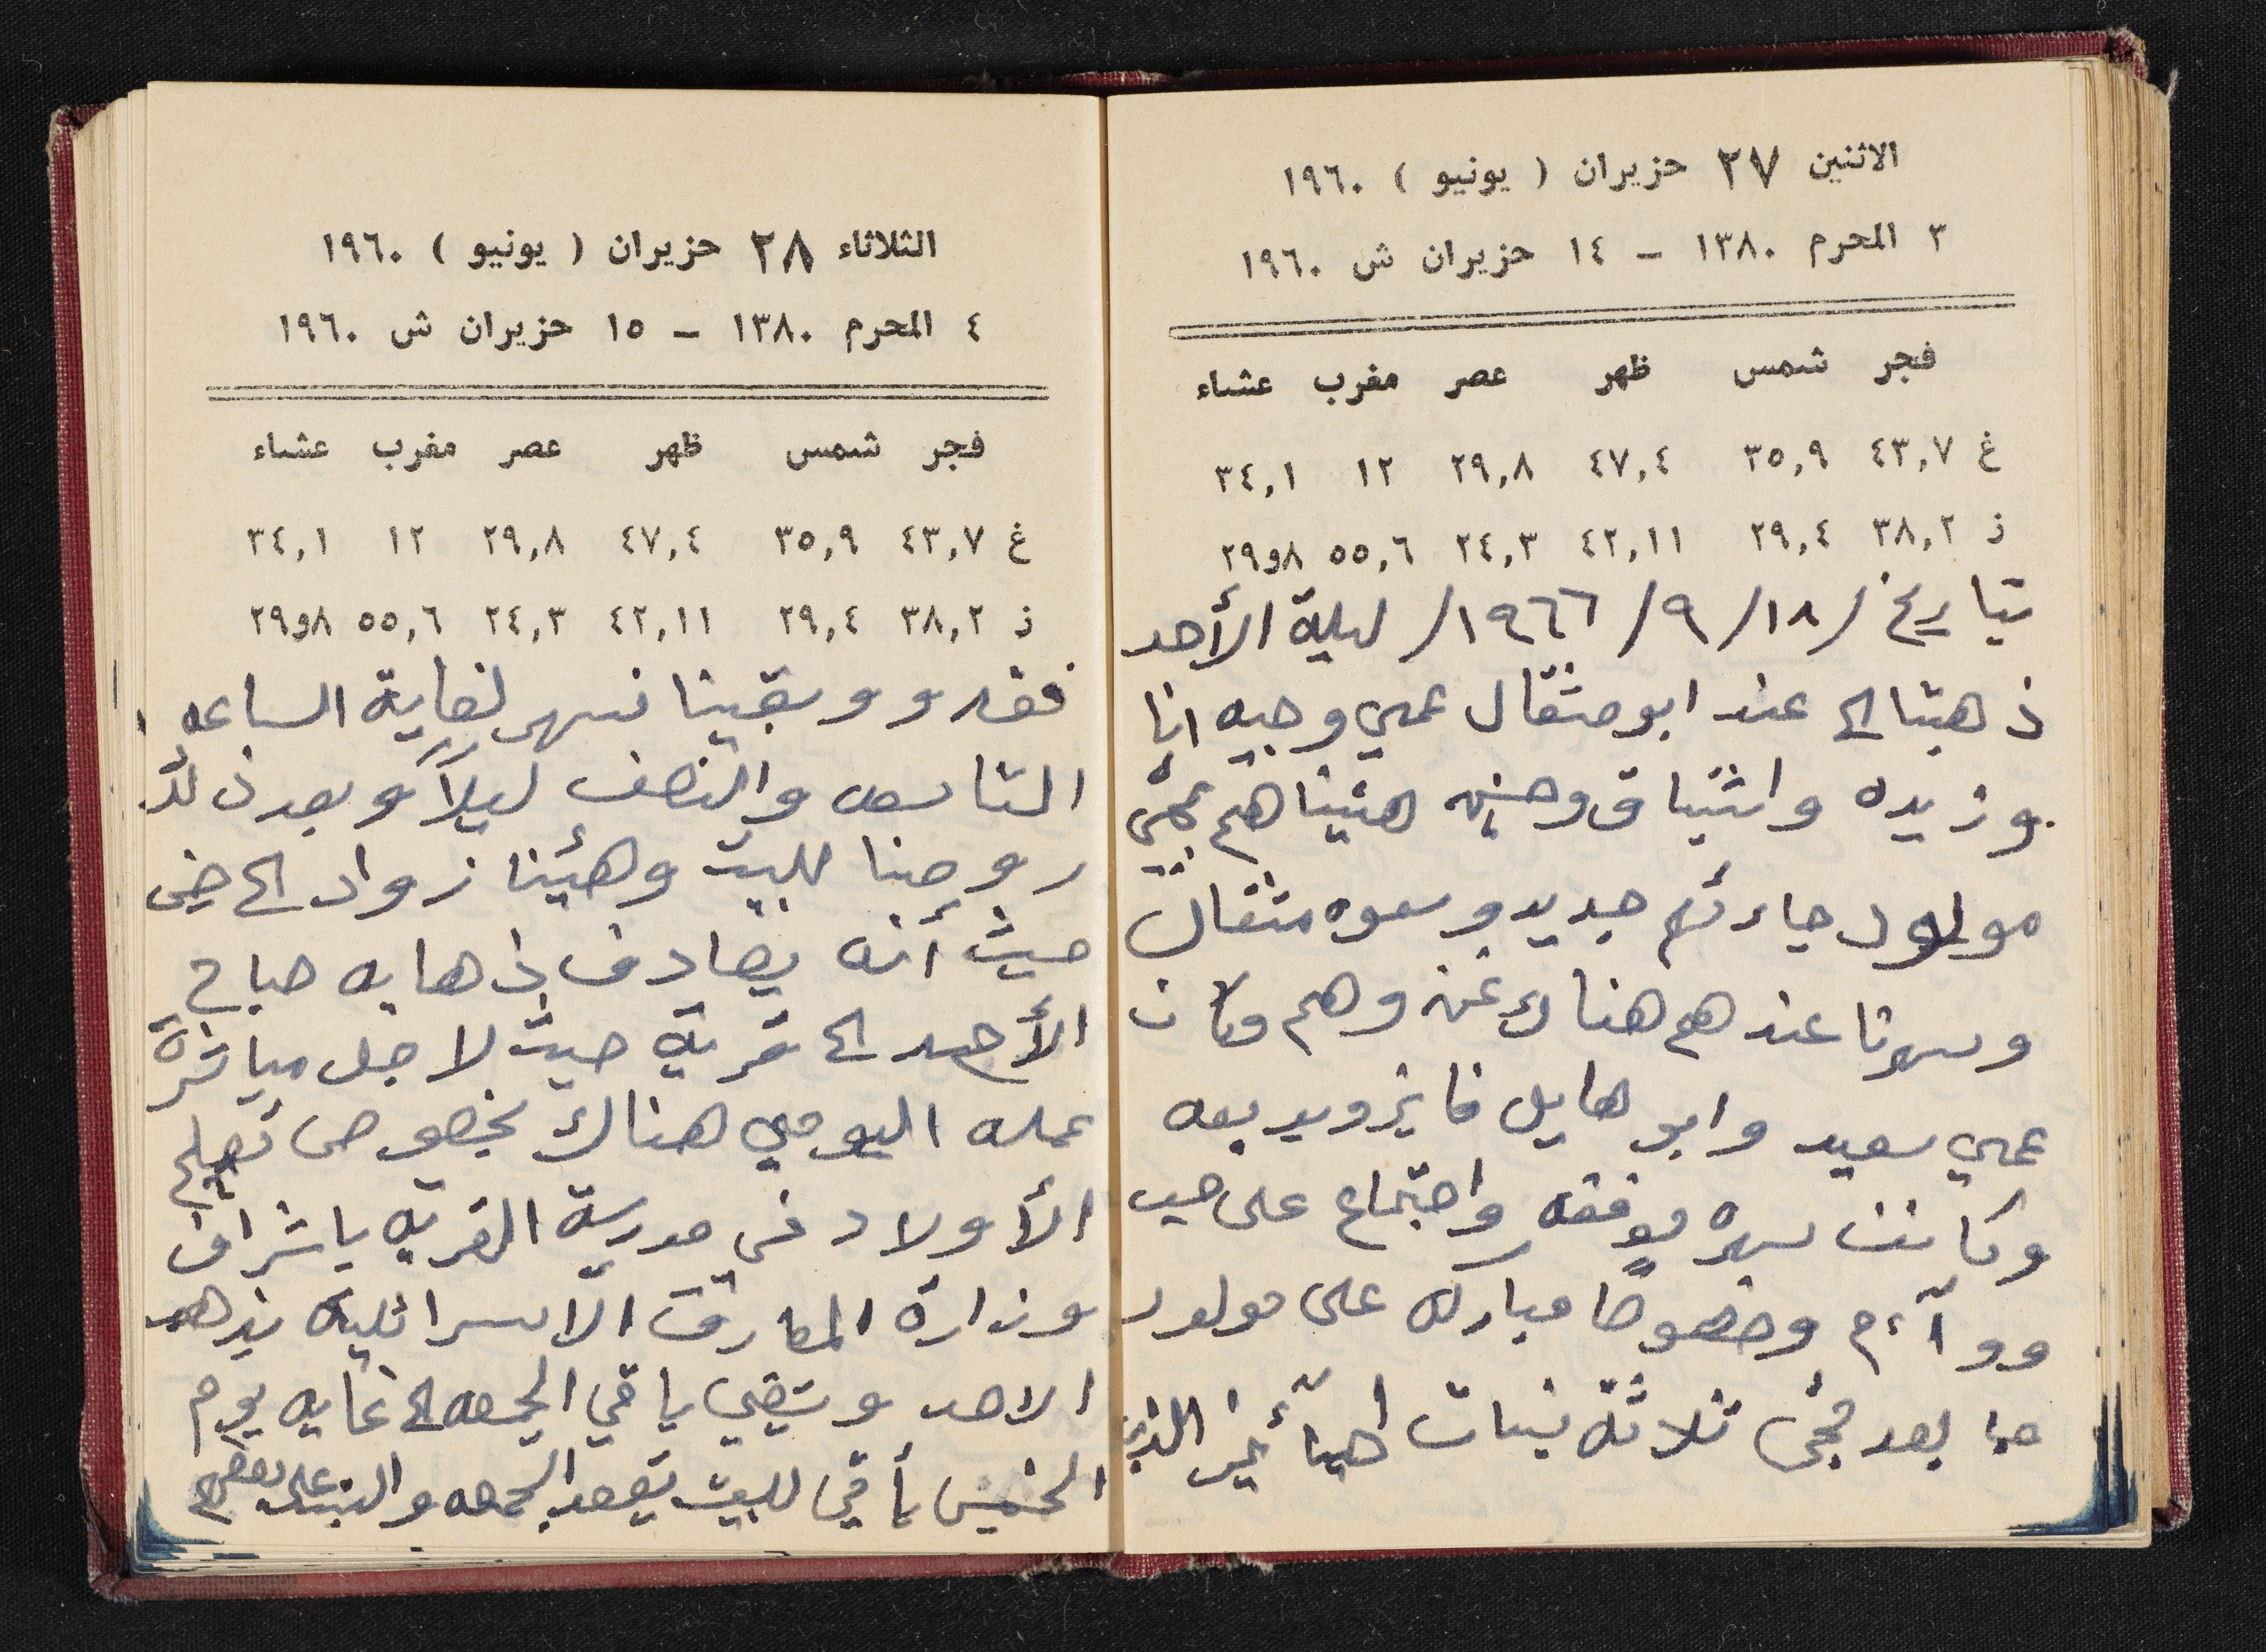 الاثنين ٢٧ حزيران ( يونيو ) ١٩٦٠
٣ المحرم ١٣٨٠ - ١٤ حزيران ش ١٩٦٠
فجر شمس ظهر عصر مغرب عشاء
غ ٤٣,٧ ٣٥,٩ ٤٧,٤ ٢٩,٨ ١٢ ٣٤,١
ز ٣٨,٢ ٢٩,٤ ٤٢,١١ ٢٤,٣ ٥٥,٦ ٨و٢٩
بتاريخ /١٨/ ٩/ ١٩٦٦/ ليلة الأحد
ذهبنا الى عند ابو مثقال عمي وجيه انا
وزيده واشتياق وهنيه هنيناهم بمجيئ
مولود جاءهم جديد وسموه مثقال
وسهرنا عندهم هناك نحن وهم وكان
عمي سعيد وابو هايل فايز وبديعه
وكانت سهره موفقه واجتماع على حب
ووآءم وخصوصا مبارك على مولود
جاء بعد مجئ ثلاثة بنات
الثلاثاء ٢٨ حزيران ( يونيو ) ١٩٦٠
٤ المحرم ١٣٨٠ - ١٥ حزيران ش ١٩٦٠
فجر شمس ظهر عصر مغرب عشاء
غ ٤٣,٧ ٣٥,٩ ٤٧,٤ ٢٩,٨ ١٢ ٣٤,١
ز ٣٨,٢ ٢٩,٤ ٤٢,١١ ٢٤,٣ ٥٥,٦ ٨و٢٩
وبقينا نسهر لغاية الساعه
التاسعه والنصف ليلاً وبعد ذلك
روحنا للبيت وهيئنا زواد
حيث أنه يصادف ذهابه صباح
الأحد الى قرية حيث لاجل مباشرة
عمله اليومي هناك بخصوص تعليم
الأولاد في مدرسة القريه باشراف
وزارة المعارف الاسرائلية يذهب
الاحد ويقضي باقي الجمعه الى غايه يوم
الخميس يأتي للبيت يقعد الجمعه والسبت على بعضهم